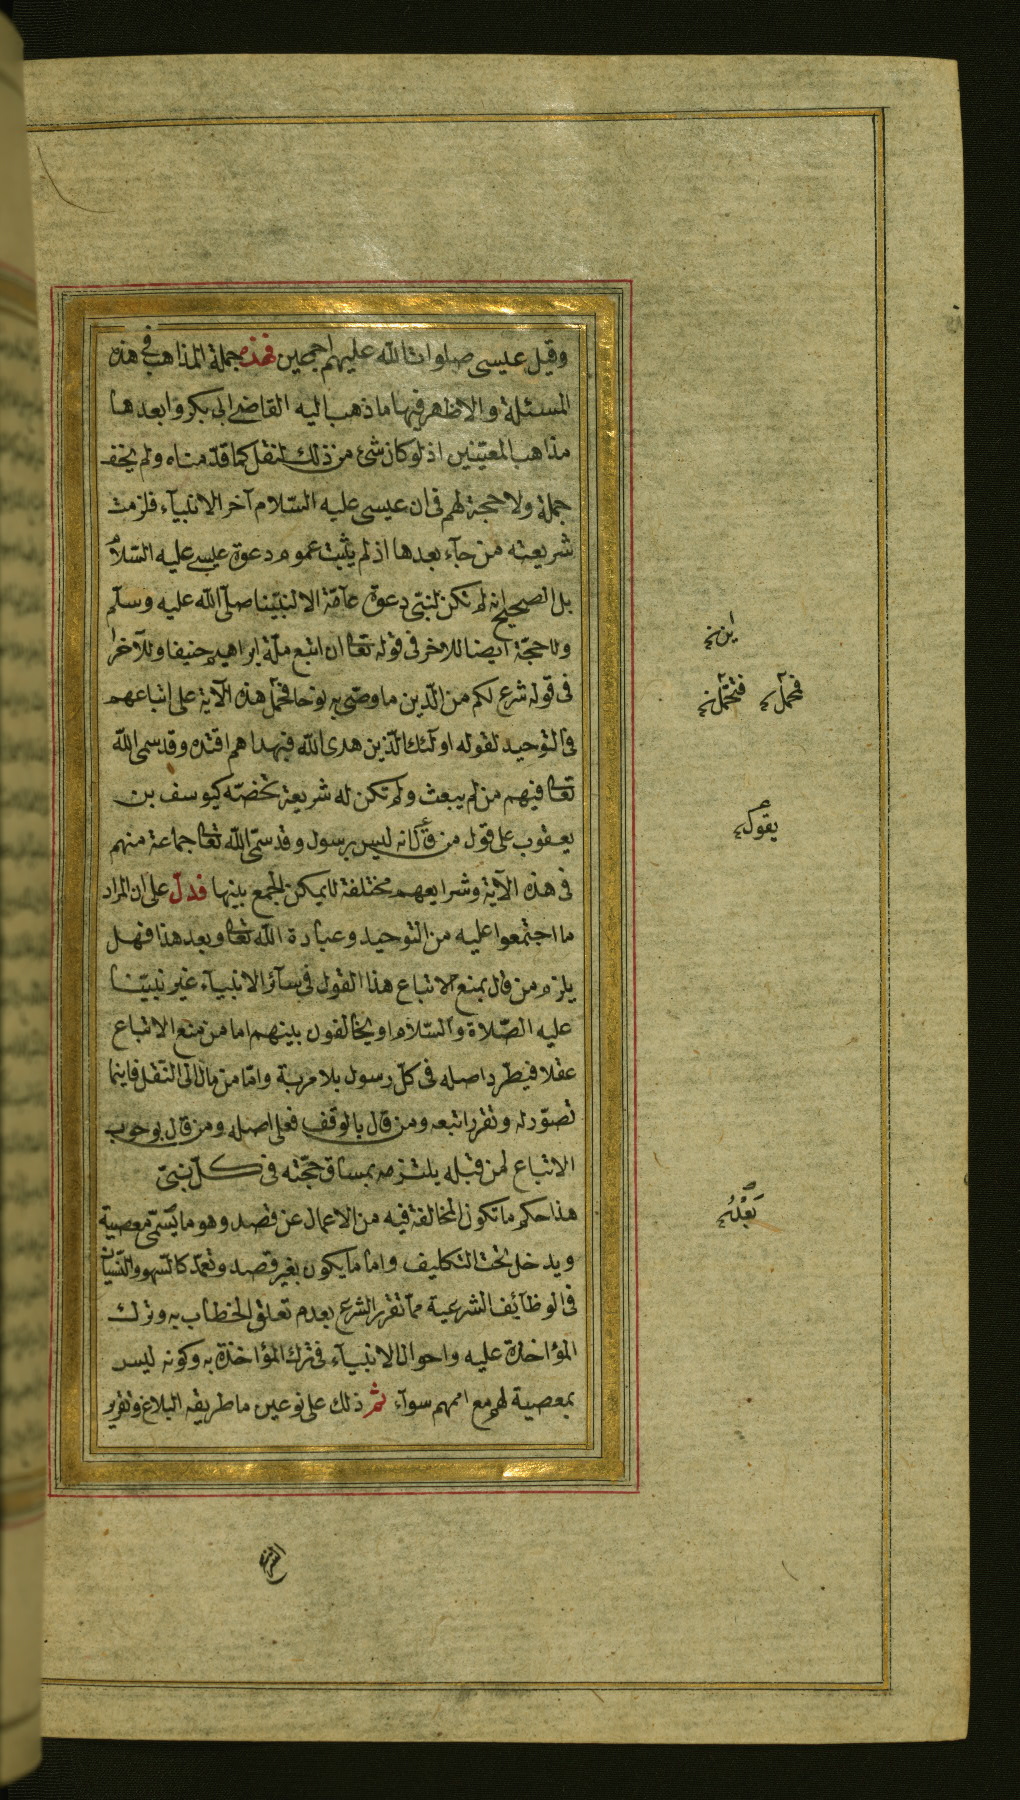 وقيل عيسى صلوات الله عليهم اجمعين فهذه جملة المذاهب فى هذه
المسئلة والاظهر فيها ما ذهب اليه القاضى ابى بكر وابعدها
مذاهب المعيّنين اذ لو كان شئ من ذلك لنقل كما قدّمناه ولم يخف
جملة ولا حجة لهم فى ان عيسى عليه السّلام آخر الانبيآء فلزمت
شريعته من جآء بعدها اذ لم يثبت عموم دعوة عيسى عليه السّلام
بل الصحيح انه لم تكن لنبىّ دعوة عآمّة الا لنبيّنا صلّى الله عليه وسلّم
ولا حجّة ايضا للاخر فى قوله تعالى ان اتبع ملّة ابراهيم حنيفا وللآخرا
فى قوله شرع لكم من الدّين ما وصّى به نوحا فحمل هذه الآية على اتباعهم
فى التوحيد لقوله اولئك الّذين هدى الله فبهداهم اقتده وقد سمى الله
تعالى فيهم من لم يبعث ولم تكن له شريعة تخصّه كيوسف بن
يعقوب على قول من قال انه ليس برسول وقد سمّى الله تعالى جماعة منهم
فى هذه الآية وشرايعهم مختلفة لا يمكن الجمع بينها فدلّ على ان المراد
ما اجتمعوا عليه من التوحيد وعبادة الله تعالى وبعد هذا فهل
يلزم من قال بمنع الاتباع هذا القول فى سآئر الانبيآء غير نبيّنا
عليه الصّلاة والسّلام او يخالفون بينهم اما من منع الاتباع
عقلا فيطّرد اصله فى كلّ رسول بلا مرية وامّا من مال الى النقل فاينما
تصوّر له وتقرر اتبعه ومن قال بالوقف فعلى اصله ومن قال بوجوب
الاتباع لمن قبله يلتزمه بمساق حجّته فى كلّ نبىّ
هذا حكم ما تكون المخالفة فيه من الاعمال عن قصد وهو ما يسمّى معصية
ويدخل تحت التكليف واما ما يكون بغير قصد وتعمّد كالسّهو والنّسيان
فى الوظآئف الشرعية ممّا تقرر الشرع بعدم تعلق الخطاب به وترك
المؤاخذة عليه واحوال الانبيآء فى ترك المؤاخذة به وكونه ليس
بمعصية لهم مع اممهم سوآء ثم ذلك على نوعين ما طريقه البلاغ وتقرير
فحمل
يقول